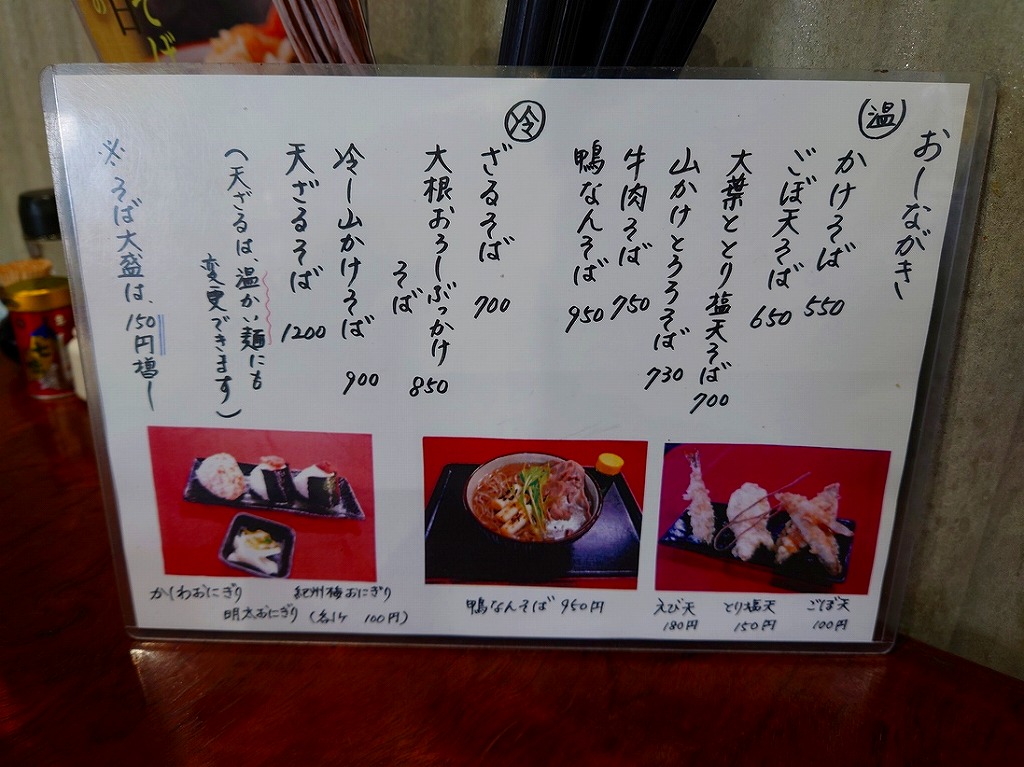 おしながき
温
かけそば 550
ごぼ天そば 650
大葉ととり塩天そば 700
山かけとろろそば 730
牛肉そば 750
鴨なんそば 950
冷
ざるそば 700
大根おろしぶっかけ
そば 850
冷し山かけそば 900
天ざるそば 1200
(天ざるは、温かい麺にも
変更できます)
※そば大盛は、150円増し
かしわおにぎり 紀州梅おにぎり
明太おにぎり (各1ヶ 100円)
鴨なんそば 950円
えび天 とり塩天 ごぼ天
180円 150円 100円
そば